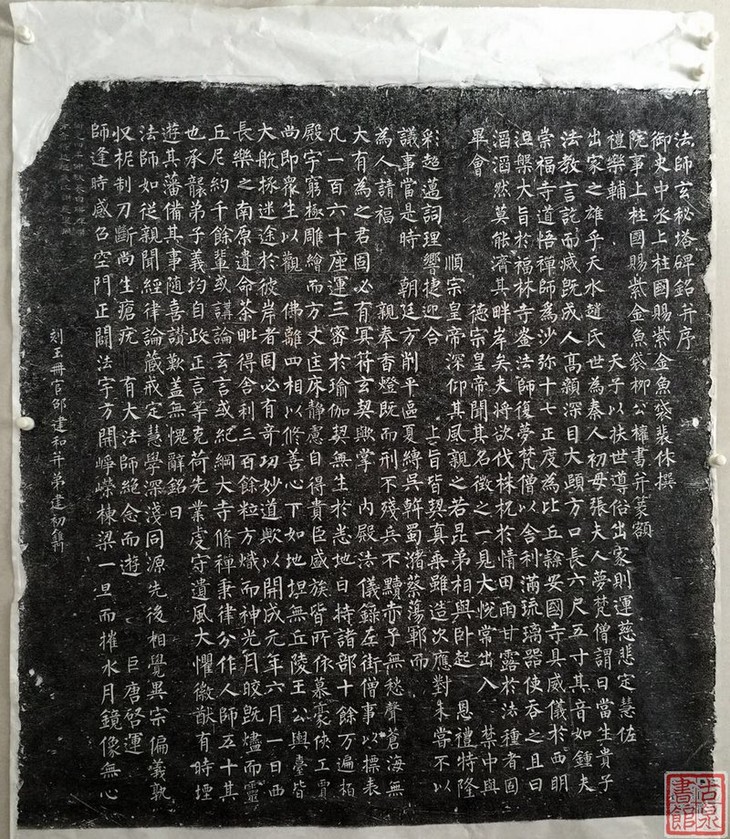 法師玄秘塔碑銘并序
御史中丞上柱國賜紫金魚袋裴休撰
院事上柱國賜紫金魚袋柳公權書并篆額
禮樂輔 天子以扶世導俗出家則運慈悲定慧佐
出家之雄乎天水趙氏世為秦人初母張夫人夢梵僧謂曰當生貴子
法教言訖而滅既成人高顙深目大頭方口長六尺五寸其音如鍾夫
崇福寺道悟禪師為沙弥十七正度為比丘隸安國寺具威儀於西明
涅槃大旨於福林寺崟法師復夢梵僧以舍利滿琉璃器使吞之且曰
滔滔然莫能濟其畔岸矣夫將欲伐株杌於情田雨甘露於法種者固
畢會 德宗皇帝聞其名徵之一見大悅常出入 禁中與
順宗皇帝深仰其風親之若昆弟相與卧起 恩禮特隆
彩超邁詞理響捷迎合 上旨皆契真乘雖造次應對未嘗不以
議事當是時 朝廷方削平區夏縛吳斡蜀瀦蔡蕩鄆而
為人請福 親奉香燈既而刑不殘兵不黷赤子無愁聲蒼海無
大有為之君固必有冥符玄契歟掌 内殿法儀錄左街僧事以標表
凡一百六十座運三密於瑜伽契無生於悉地日持諸部十餘万遍指
殿宇窮極雕繪而方丈匡床靜慮自得貴臣盛族皆所依慕豪俠工賈
尚即眾生以觀 佛離四相以修善心下如地坦無丘陵王公輿臺皆
大航拯迷途於彼岸者固必有奇功妙道歟以開成元年六月一日西
長樂之南原遺命荼毗得舍利三百餘粒方熾而神光月皎既燼而靈
丘尼約千餘輩或講論玄言或紀綱大寺修禪秉律分作人師五十其
也承襲弟子義均自政正言等克荷先業虔守遺風大懼徽猷有時堙
遊其藩備其事隨喜讚歎盖無愧辭銘曰
法師如從親聞經律論藏戒定慧學深淺同源先後相覺異宗偏義孰
収柅制刀斷尚生瘡疣 有大法師絕念而遊 巨唐啓運
師逢時感召空門正闢法宇方開崢嶸棟梁一旦而摧水月鏡像無心
刻玉冊官邵建和并弟建初鐫
古泉書館